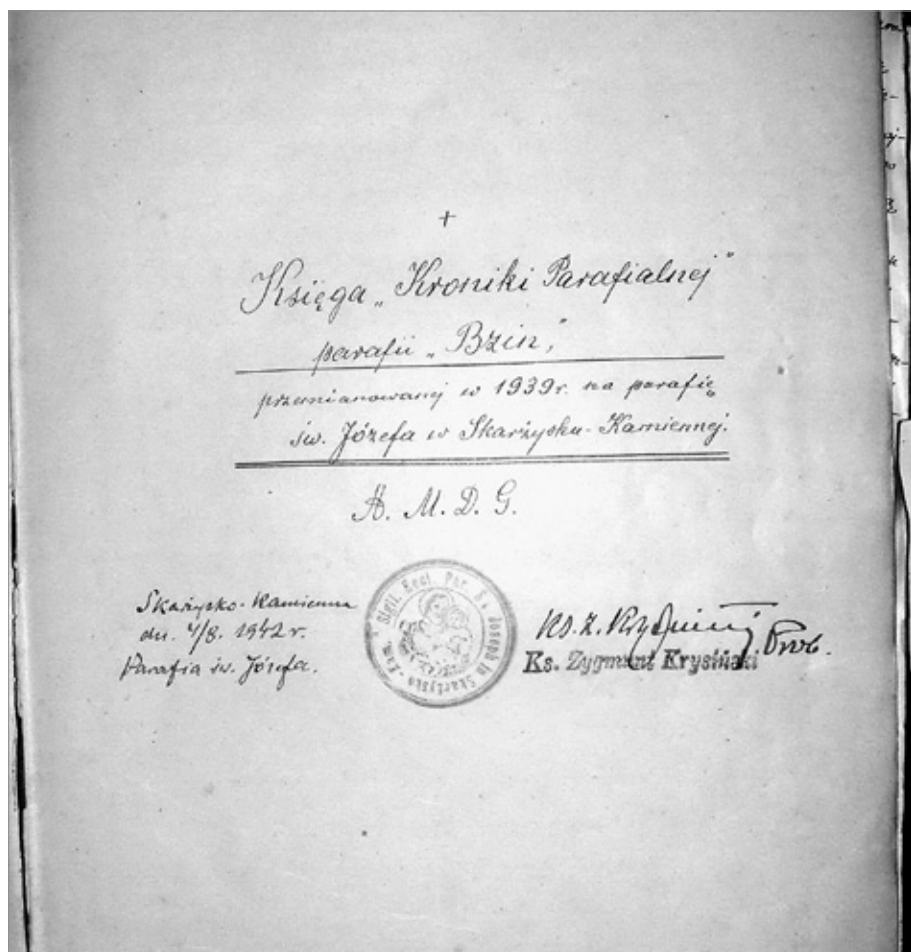 +
Księga „Kroniki Parafialnej"
parafii „Bzin",
przemianowanej w 1939r. na parafię
św. Józefa w Skarżysku-Kamiennej.
A. M. D. G.
Skarżysko-Kamienna
dn. 4/8. 1942 r.
Parafia św. Józefa.
Sigil. Eccl. Par. S. Joseph in Skarżysko-Kam.
Ks. Z. Krysiński Prob.
Ks. Zygmunt Krysiński